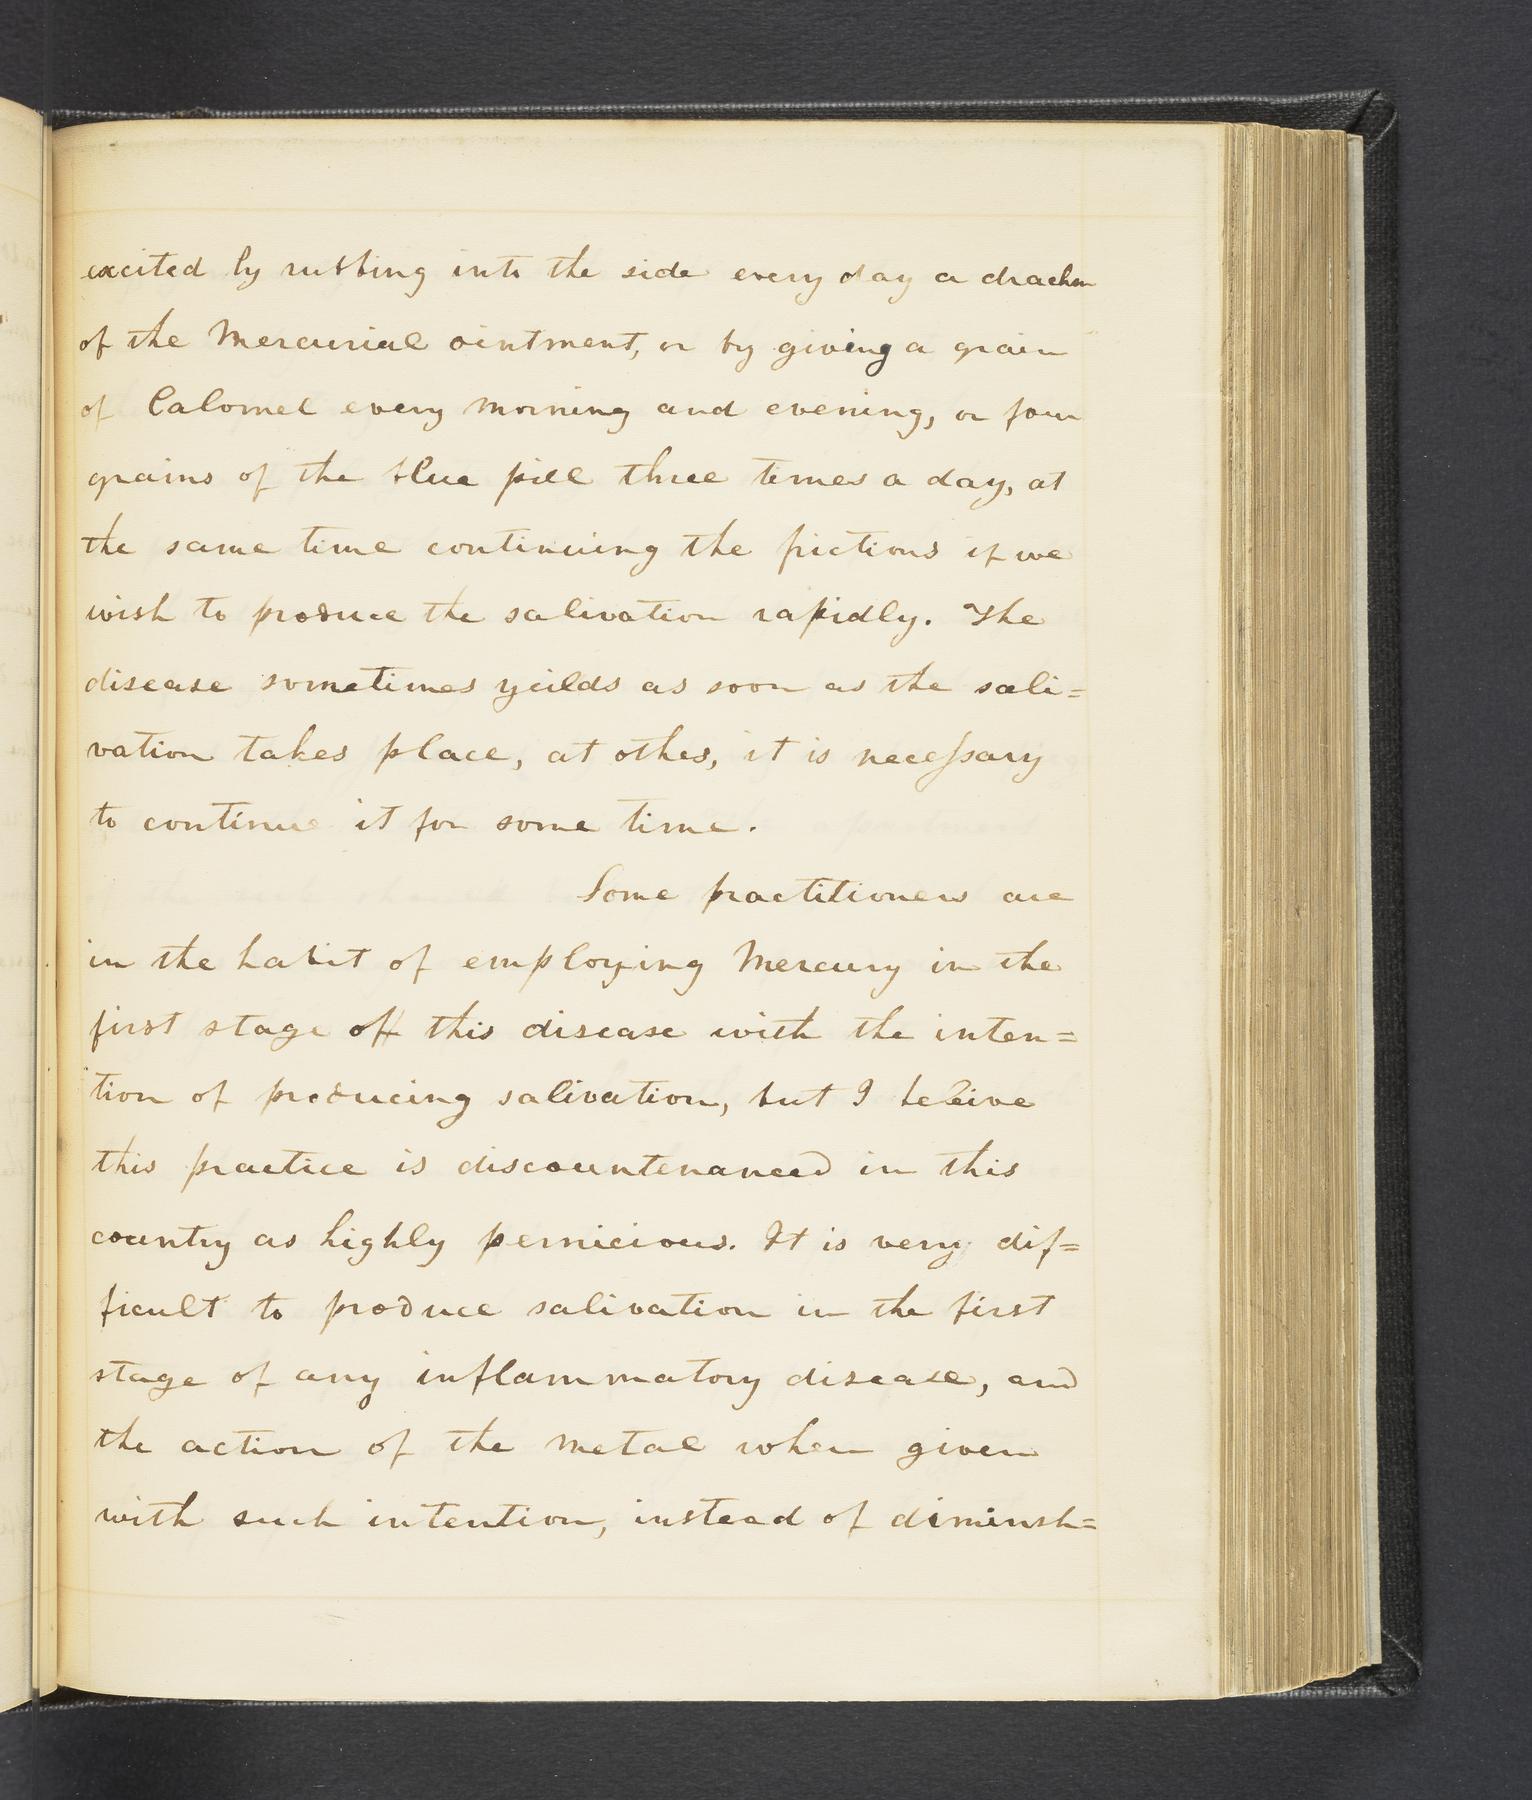 excited by rubbing into the side every day a drachm
of the Mercurial ointment, or by giving a grain
of Calomel every morning and evening, or four
grains of the blue pill three times a day, at
the same time continuing the frictions if we
wish to produce the salivation rapidly. The
disease sometimes yeilds as soon as the sali=
vation takes place, at othes, it is necessary
to continue it for some time.
Some practitioners are
in the habit of employing Mercury in the
first stage off this disease with the inten=
tion of producing salivation, but I beleive
this practice is discountenanced in this
country as highly pernicious. It is very dif=
ficult to produce salivation in the first
stage of any inflammatory disease, and
the action of the metal when given
with such intention, instead of diminsh=